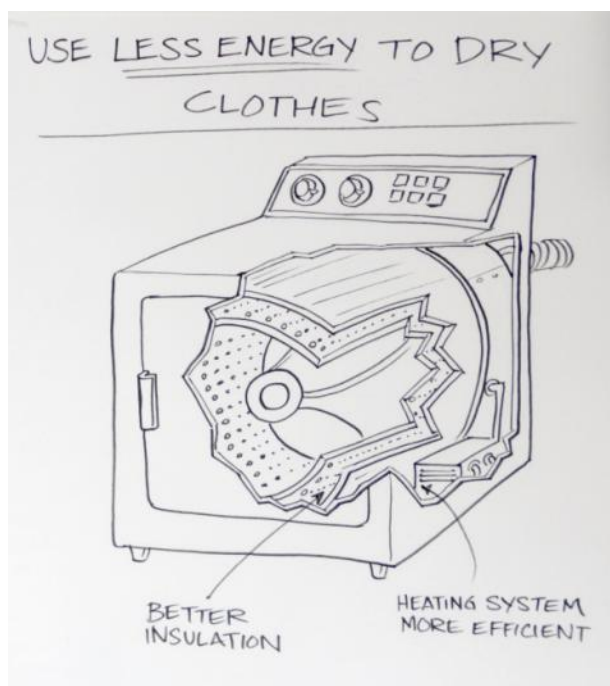 USE LESS ENERGY TO DRY
CLOTHES
BETTER
INSULATION
HEATING SYSTEM
MORE EFFICIENT